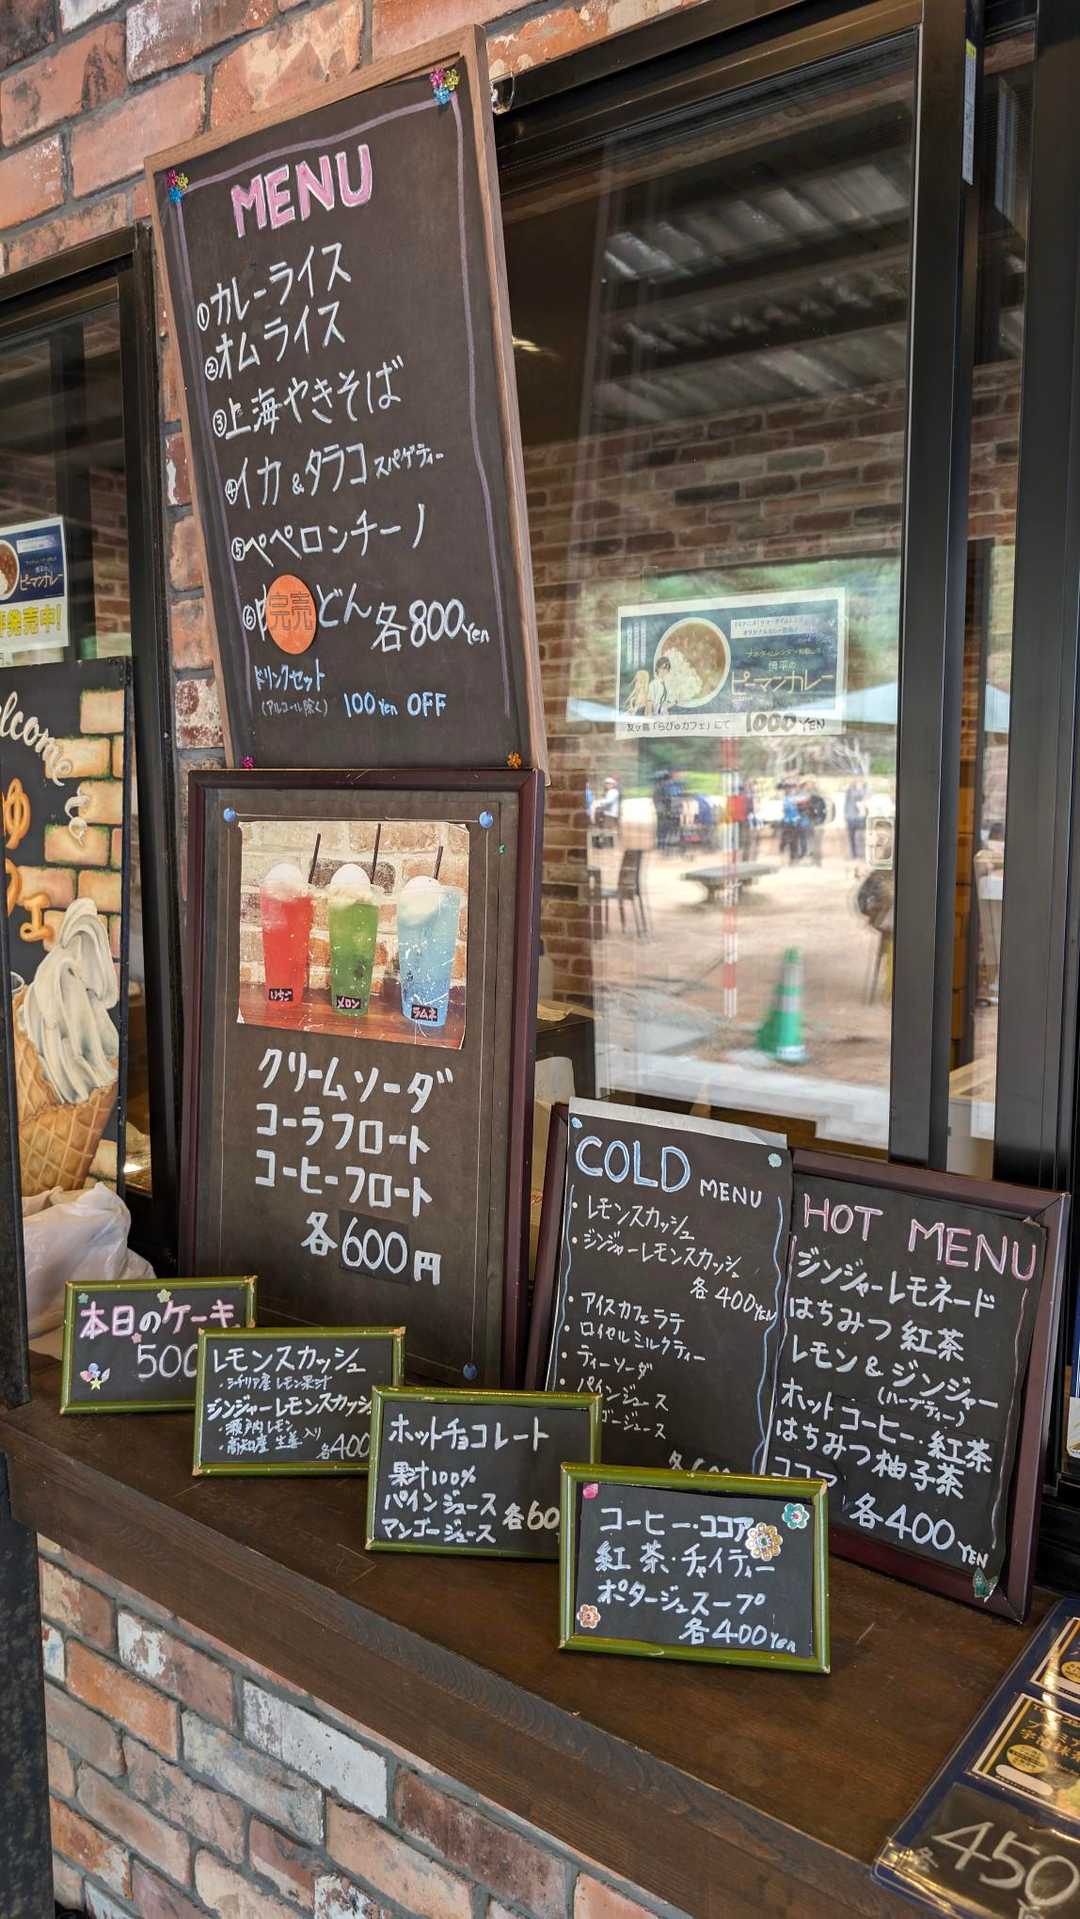 MENU
①カレーライス
②オムライス
③上海やきそば
④イカ&タラコ スパゲティー
⑤ペペロンチーノ
⑥ 完売 どん 各800yen
ドリンクセット
(アルコール除く) 100yen OFF
ピーマンカレー
発売中!
elcome
ゆ
ェ
ピーマンカレー
友ヶ島「らぴゅカフェ」にて 1000YEN
いちご メロン ラムネ
クリームソーダ
コーラフロート
コーヒーフロート
各600円
COLD MENU
・レモンスカッシュ
・ジンジャーレモンスカッシュ
各400YEN
・アイスカフェラテ
・ロイヤルミルクティー
・ティーソーダ
・パインジュース
ゴージュース
HOT MENU
ジンジャーレモネード
はちみつ紅茶
レモン&ジンジャー
(ハーブティー)
ホットコーヒー・紅茶
はちみつ柚子茶
ココア
各400YEN
本日のケーキ
500
レモンスカッシュ
・シチリア産 レモン果汁
ジンジャーレモンスカッシュ
・瀬戸内レモン
・高知産 生姜 入り
各400
ホットチョコレート
果汁100%
パインジュース
マンゴージュース 各60
コーヒー・ココア
紅茶・チャイティー
ポタージュスープ
各400yen
各450